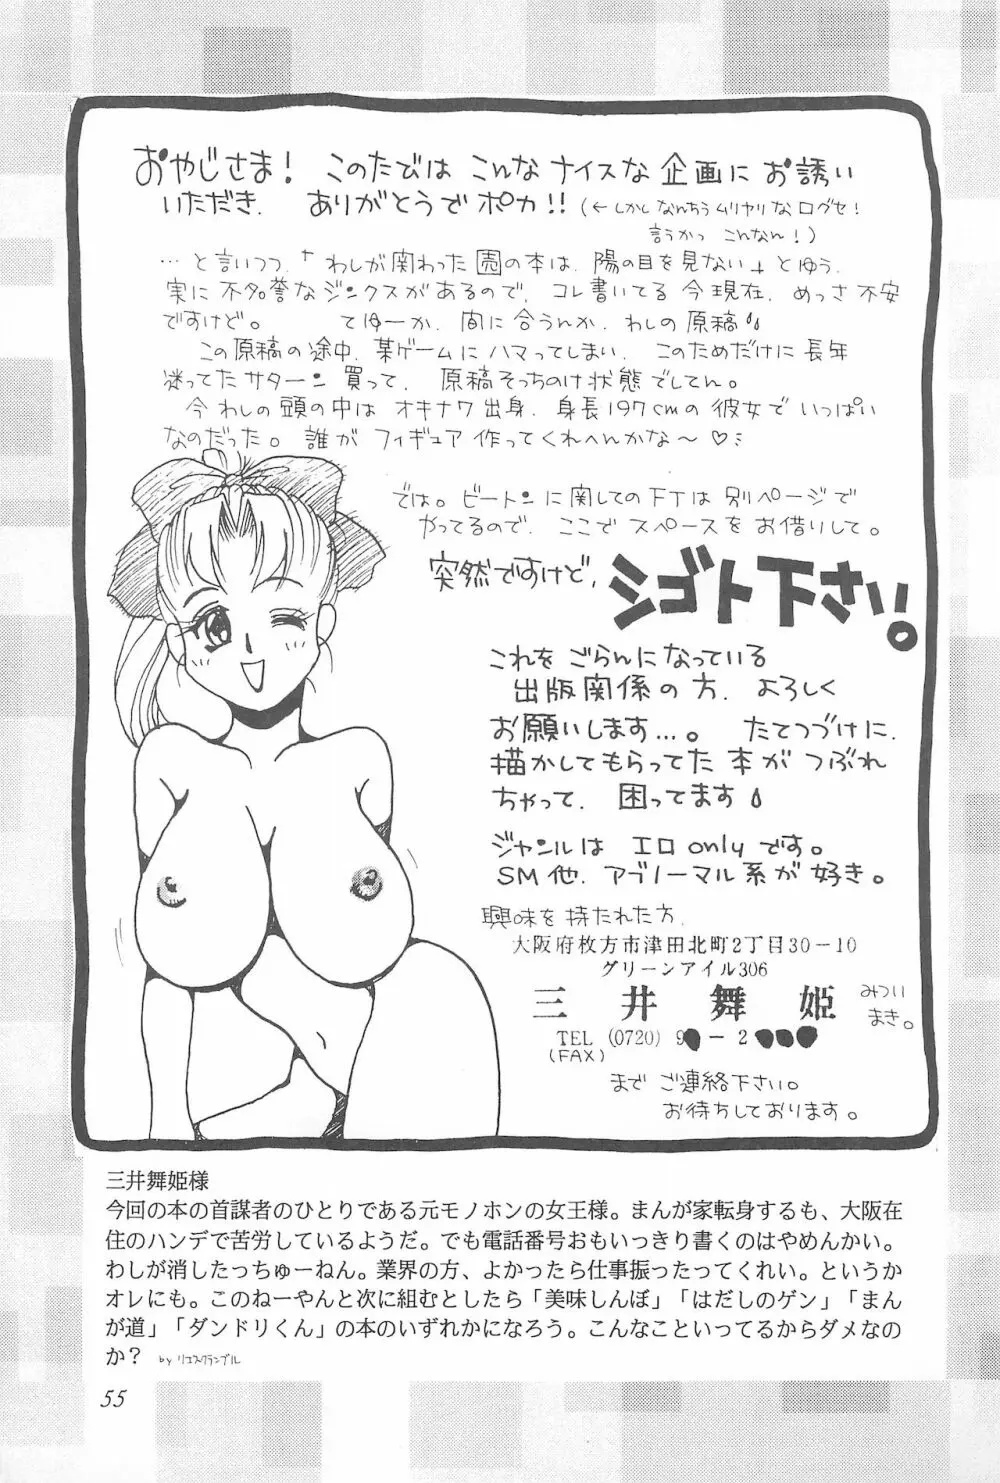 おやじさま! このたびは こんな ナイスな 企画に お誘い
いただき、 ありがとうでポカ!! (←しかしなんちうムリヤリなログセ!
言うかっ こんなん!)
…と言いつつ、「わしが関わった園の本は、陽の目を見ない」とゆう、
実に不名誉なジンクスがあるので、コレ書いてる今現在、めっさ不安
ですけど。 てゆーか、間に合うんか、わしの原稿
この原稿の途中、某ゲームにハマってしまい、このためだけに長年
迷ってたサターン買って、原稿そっちのけ状態でしてん。
今わしの頭の中はオキナワ出身、身長197cmの彼女でいっぱい
なのだった。誰がフィギュア作ってくれへんかな〜♡
では。ビートンに関してのFTは別ページで
やってるので、ここでスペースをお借りして。
突然ですけど、シゴト下さい。
これをごらんになっている
出版関係の方、よろしく
お願いします…。 たてつづけに、
描かしてもらってた本がつぶれ
ちゃって、困ってます
ジャンルは エロonlyです。
SM他、アブノーマル系が好き。
興味を持たれた方、
大阪府枚方市津田北町2丁目30-10
グリーンアイル306
三井舞姫 みつい
まき。
TEL (0720) 9 - 2
(FAX)
まで ご連絡下さい。
お待ちしております。
三井舞姫様
今回の本の首謀者のひとりである元モノホンの女王様。まんが家転身するも、大阪在
住のハンデで苦労しているようだ。でも電話番号おもいっきり書くのはやめんかい。
わしが消したっちゅーねん。業界の方、よかったら仕事振ったってくれい。というか
オレにも。このねーやんと次に組むとしたら「美味しんぼ」「はだしのゲン」「まん
が道」「ダンドリくん」の本のいずれかになろう。こんなこといってるからダメなの
か? by リエスクランブル
55